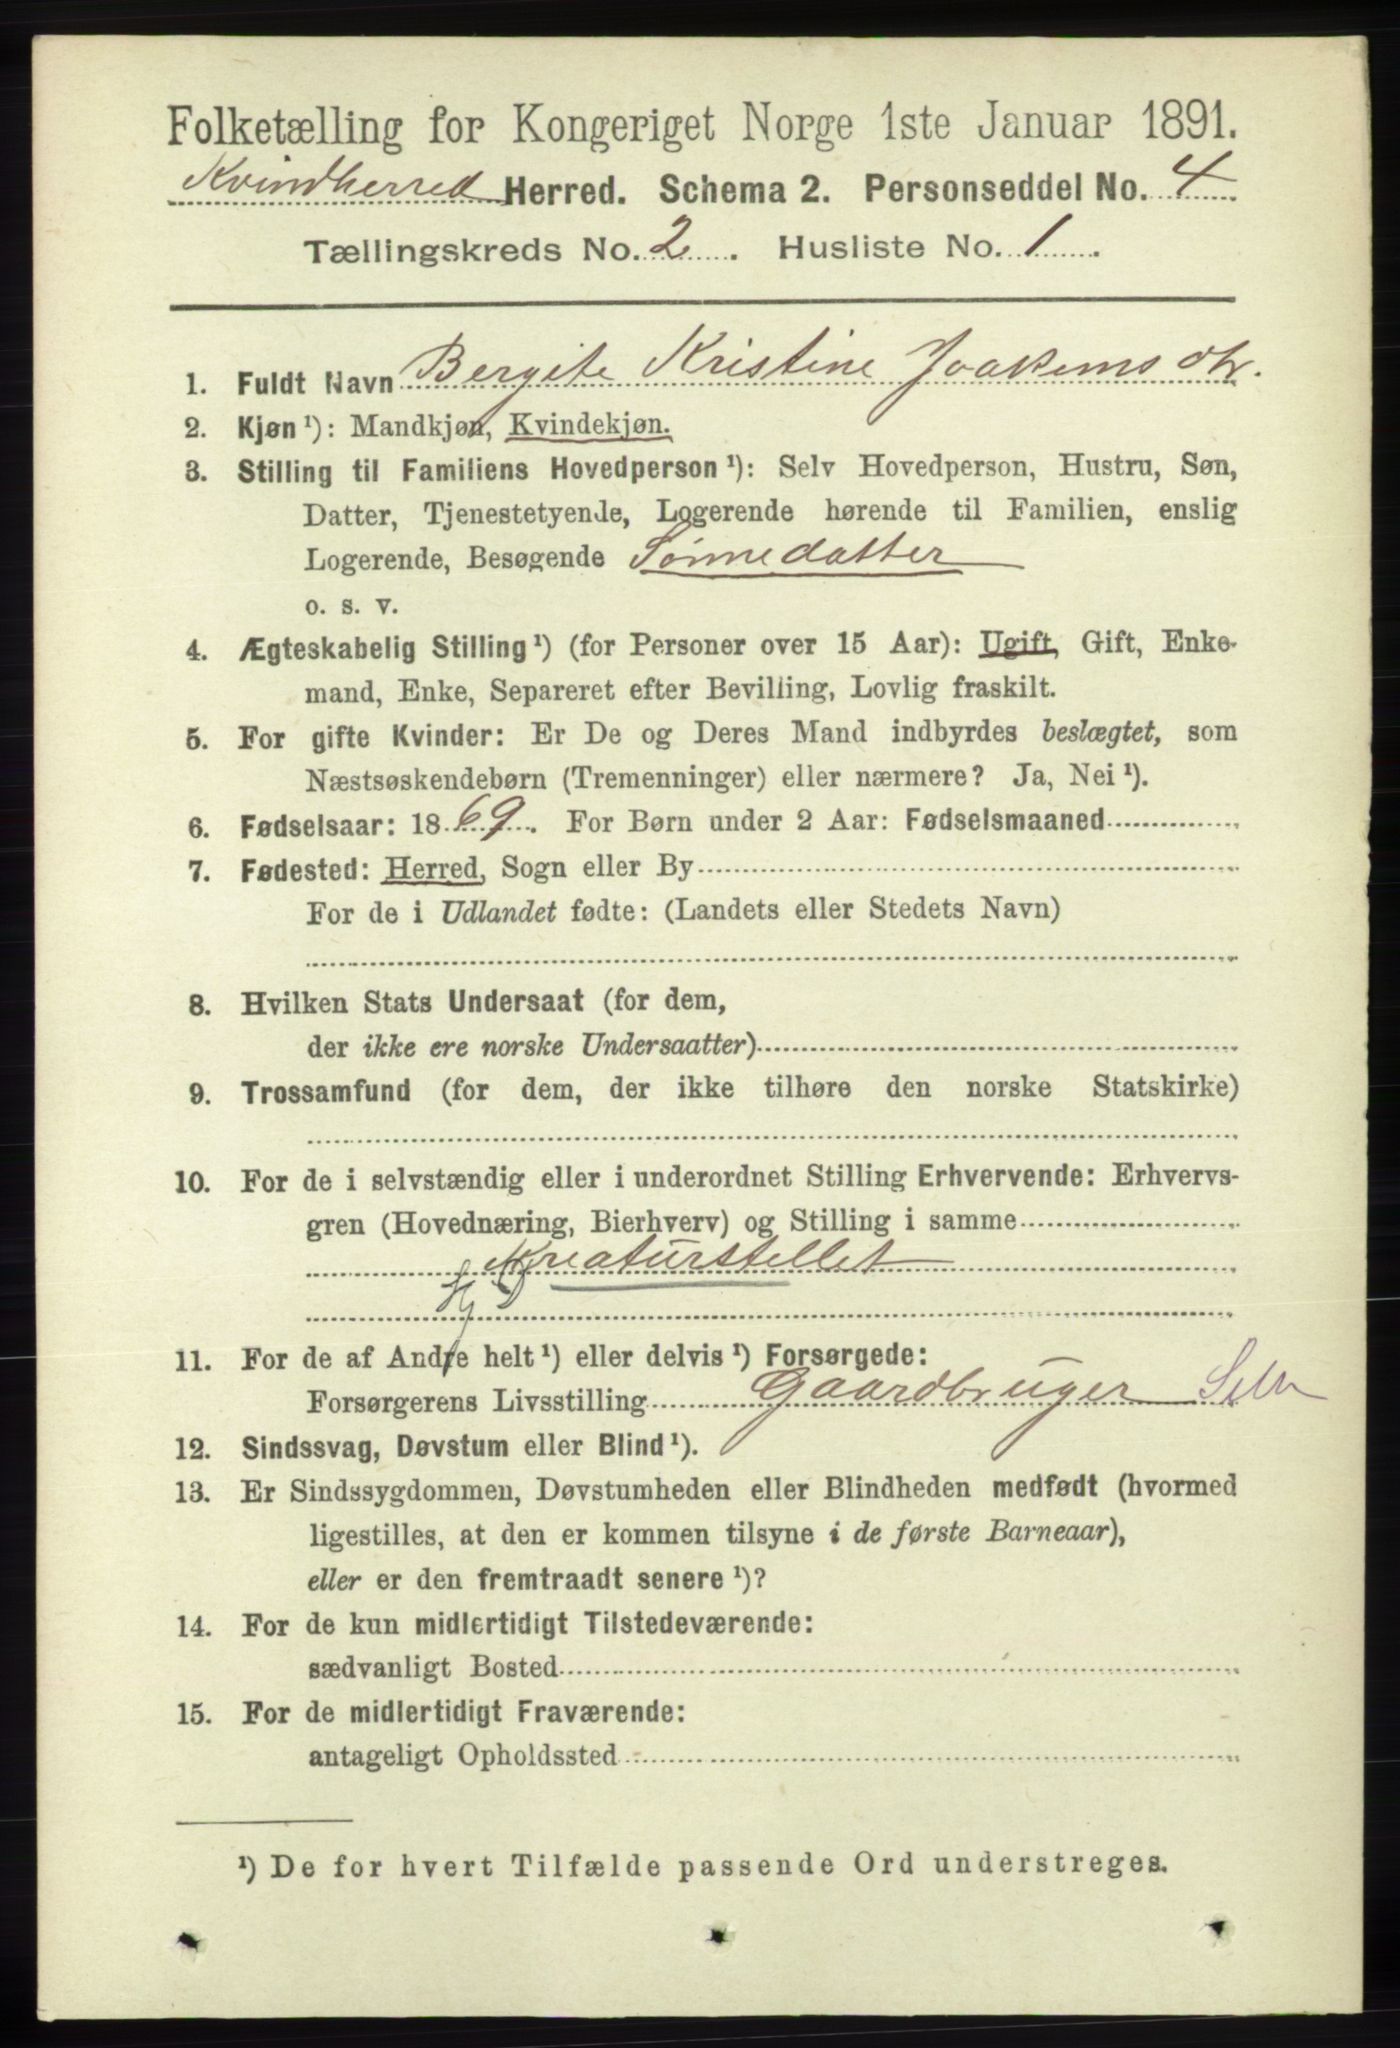 Folketælling for Kongeriget Norge 1ste Januar 1891.
Kvindherred Herred. Schema 2. Personseddel No. 4
Tællingskreds No. 2. Husliste No. 1.
1. Fuldt Navn Bergite Kristine Joakems dtr.
2. Kjøn¹): Mandkjøn, Kvindekjøn.
3. Stilling til Familiens Hovedperson¹): Selv Hovedperson, Hustru, Søn,
Datter, Tjenestetyende, Logerende hørende til Familien, enslig
Logerende, Besøgende Sønnedatter
o. s. v.
4. Ægteskabelig Stilling¹) (for Personer over 15 Aar): Ugift, Gift, Enke-
mand, Enke, Separeret efter Bevilling, Lovlig fraskilt.
5. For gifte Kvinder: Er De og Deres Mand indbyrdes beslægtet, som
Næstsøskendebørn (Tremenninger) eller nærmere? Ja, Nei¹).
6. Fødselsaar: 1869. For Børn under 2 Aar: Fødselsmaaned
7. Fødested: Herred, Sogn eller By
For de i Udlandet fødte: (Landets eller Stedets Navn)
8. Hvilken Stats Undersaat (for dem,
der ikke ere norske Undersaatter)
9. Trossamfund (for dem, der ikke tilhøre den norske Statskirke)
10. For de i selvstændig eller i underordnet Stilling Erhvervende: Erhvervs-
gren (Hovednæring, Bierhverv) og Stilling i samme
Kreaturstellet
11. For de af Andre helt¹) eller delvis¹) Forsørgede:
Forsørgerens Livsstilling Gaardbruger Selv
12. Sindssvag, Døvstum eller Blind¹).
13. Er Sindssygdommen, Døvstumheden eller Blindheden medfødt (hvormed
ligestilles, at den er kommen tilsyne i de første Barneaar),
eller er den fremtraadt senere¹)?
14. For de kun midlertidigt Tilstedeværende:
sædvanligt Bosted
15. For de midlertidigt Fraværende:
antageligt Opholdssted
¹) De for hvert Tilfælde passende Ord understreges.